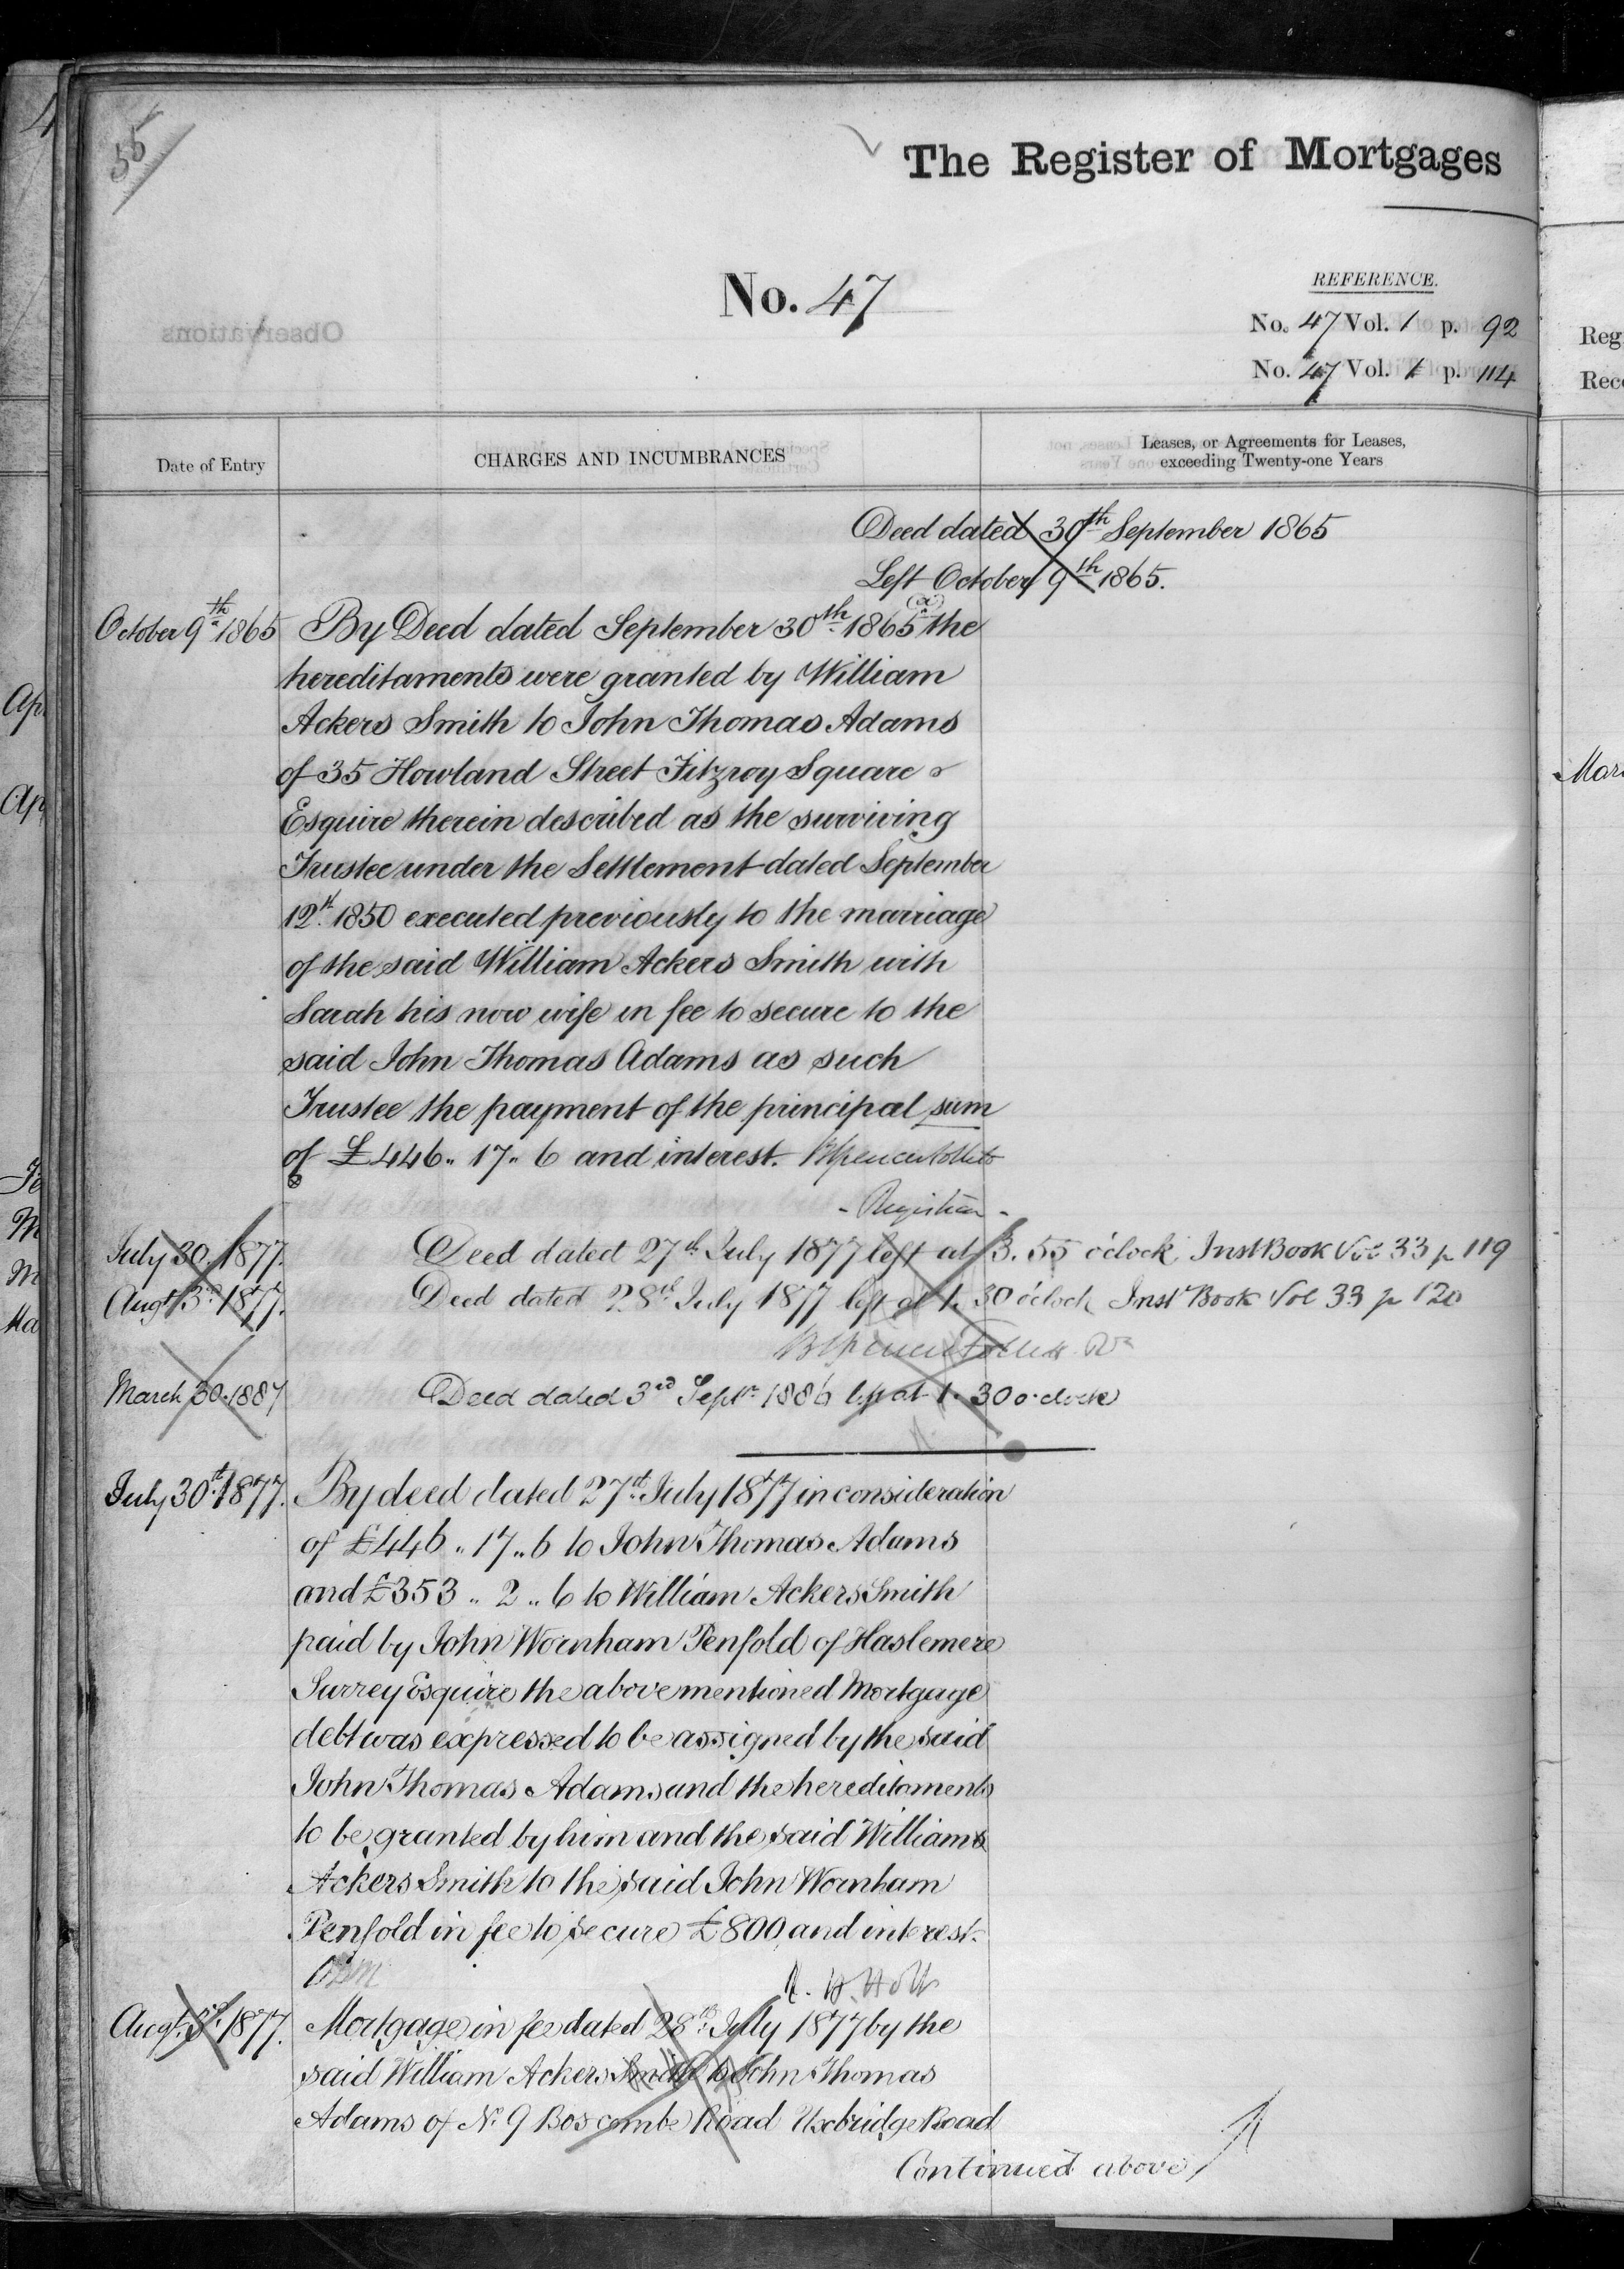 55
The Register of Mortgages
No. 47
REFERENCE.
No. 47 Vol. 1 p. 92
No. 47 Vol. 1 p. 114
Observations
Date of Entry
CHARGES AND INCUMBRANCES
Leases, or Agreements for Leases,
exceeding Twenty-one Years
Deed dated 30th September 1865
Left October 9th 1865.
October 9th 1865 By Deed dated September 30th 1865 (a) the
hereditaments were granted by William
Ackers Smith to John Thomas Adams
of 35 Howland Street Fitzroy Square
Esquire therein described as the surviving
Trustee under the Settlement dated September
12th 1850 executed previously to the marriage
of the said William Ackers Smith with
Sarah his now wife in fee to secure to the
said John Thomas Adams as such
Trustee the payment of the principal sum
of £446.. 17.. 6 and interest.
- Registrar -
July 30. 1877. Deed dated 27th July 1877 left at 3. 55 o'clock Inst Book Vol 33 p 119
Augt 3rd 1877. Deed dated 28th July 1877 left at 1. 30 o'clock Inst Book Vol 33 p 120
March 30. 1887 Deed dated 3rd Septr 1886 left at 1. 30 o'clock
July 30th 1877. By deed dated 27th July 1877 in consideration
of £446.. 17.. 6 to John Thomas Adams
and £353.. 2.. 6 to William Ackers Smith
paid by John Wornham Penfold of Haslemere
Surrey Esquire the above mentioned Mortgage
debt was expressed to be assigned by the said
John Thomas Adams and the hereditaments
to be granted by him and the said William
Ackers Smith to the said John Wornham
Penfold in fee to secure £800 and interest.
Augt. 3d. 1877. Mortgage in fee dated 28th July 1877 by the
said William Ackers Smith to John Thomas
Adams of No 9 Boscombe Road Uxbridge Road
Continued above
Reg
Rec
Mar